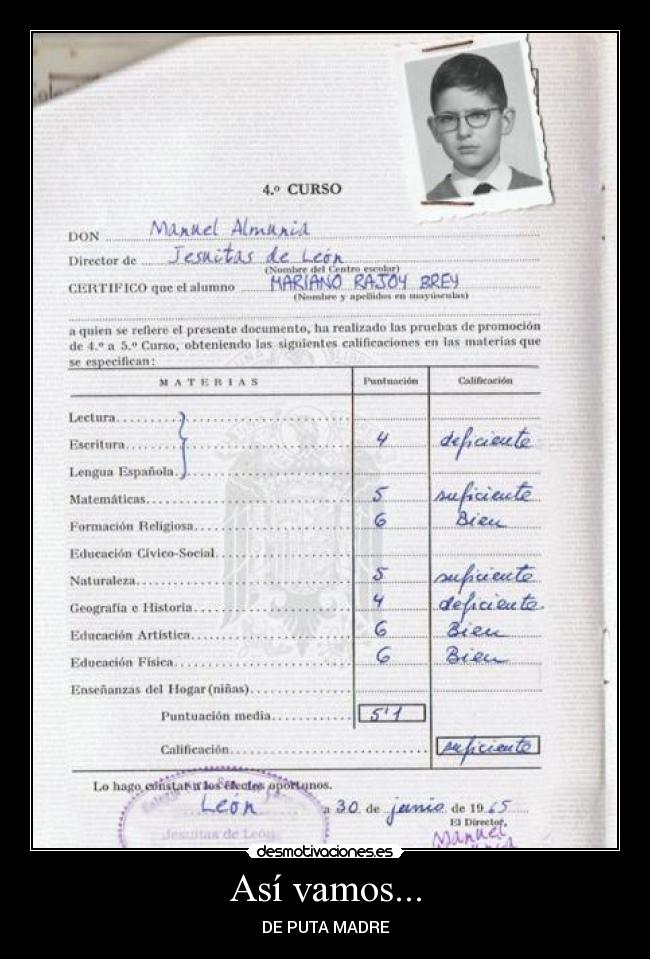 4.º CURSO
DON Manuel Almunia
Director de Jesuitas de León
(Nombre del Centro escolar)
CERTIFICO que el alumno MARIANO RAJOY BREY
(Nombre y apellidos en mayúsculas)
a quien se refiere el presente documento, ha realizado las pruebas de promoción
de 4.º a 5.º Curso, obteniendo las siguientes calificaciones en las materias que
se especifican:
MATERIAS Puntuación Calificación
Lectura
Escritura 4 deficiente
Lengua Española
Matemáticas 5 suficiente
Formación Religiosa 6 Bien
Educación Cívico-Social
Naturaleza 5 suficiente
Geografía e Historia 4 deficiente
Educación Artística 6 Bien
Educación Física 6 Bien
Enseñanzas del Hogar (niñas)
Puntuación media 5'1
Calificación suficiente
Lo hago constar a los efectos oportunos.
León a 30 de junio de 1965
Jesuitas de León
El Director,
Manuel
desmotivaciones.es
Así vamos...
DE PUTA MADRE